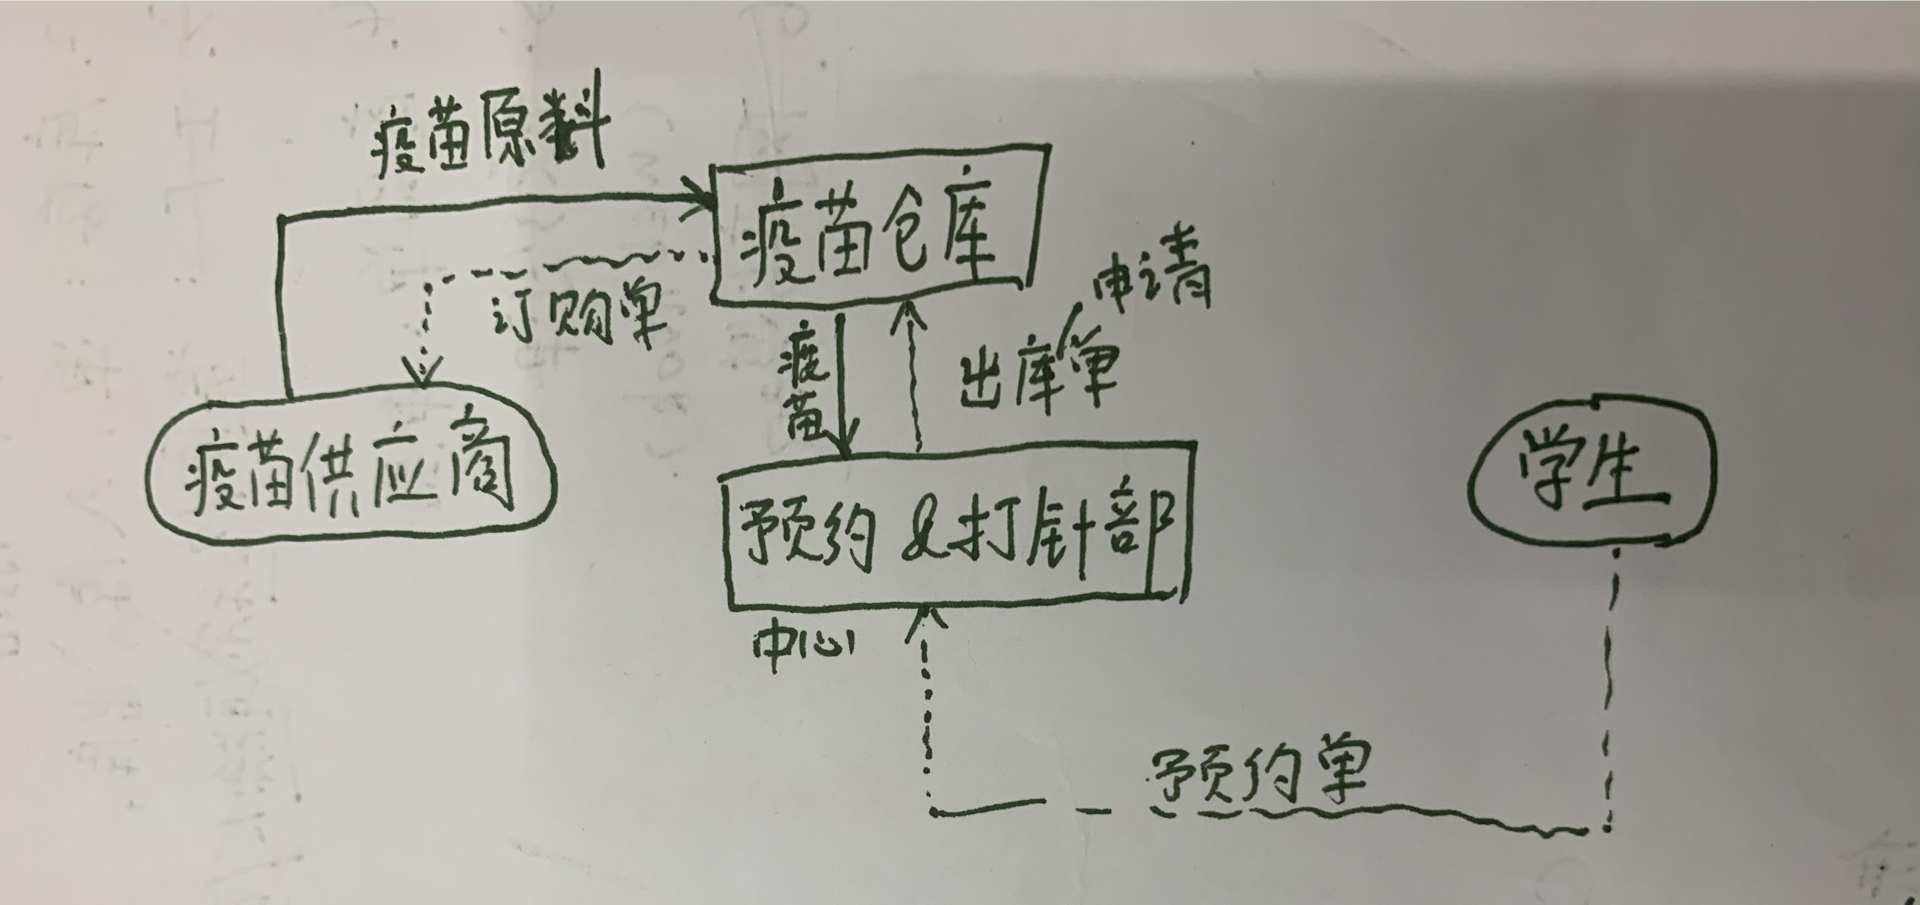 疫苗原料
疫苗仓库
申请
订购单
疫苗
出库单
疫苗供应商
学生
预约&打针部
中心
预约单